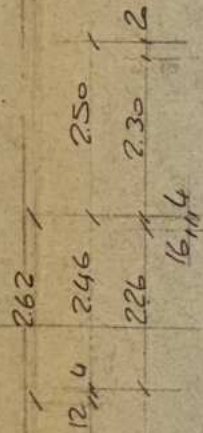 262
12 4 246 250
226 230 2
16 4